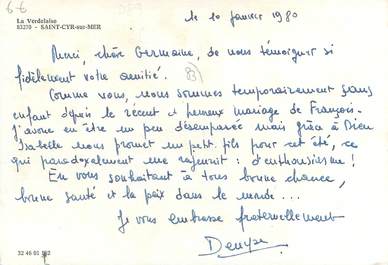 6-6
La Verdelaise
83270 - SAINT-CYR-sur-MER
le 10 janvier 1980
Merci, chère Germaine, de nous témoigner si
fidèlement votre amitié. 83)
Comme vous, nous sommes temporairement sans
enfant depuis le récent et heureux mariage de François.
J'avoue en être un peu désemparée mais grâce à Dieu
Isabelle nous promet un petit fils pour cet été, ce
qui paradoxalement me rajeunit : d'enthousiasme !
En vous souhaitant à tous bonne chance,
bonne santé et la paix dans le monde...
Je vous embrasse fraternellement
Denyse
32 46 01